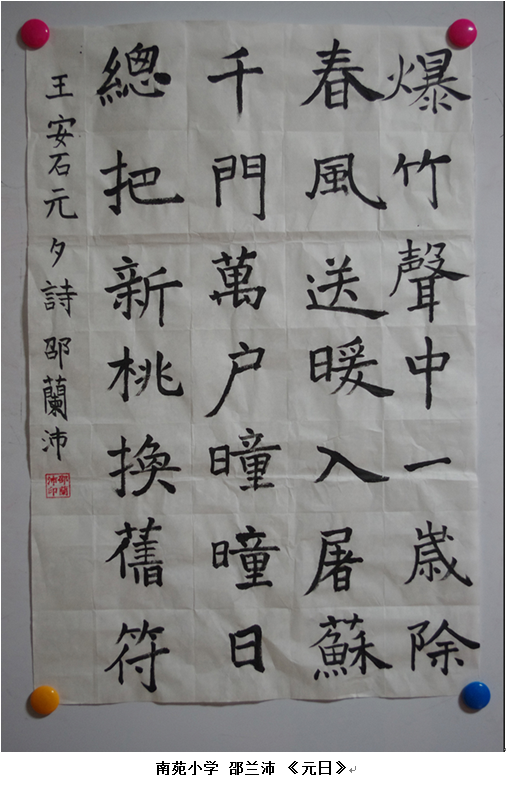 爆竹聲中一歲除
春風送暖入屠蘇
千門萬户曈曈日
總把新桃換舊符
王安石元夕詩 邵蘭沛
邵蘭沛印
南苑小学 邵兰沛 《元日》